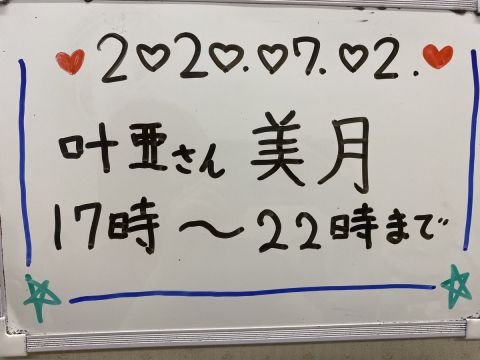 2♡2♡.♡7.♡2.
叶亜さん 美月
17時〜22時まで